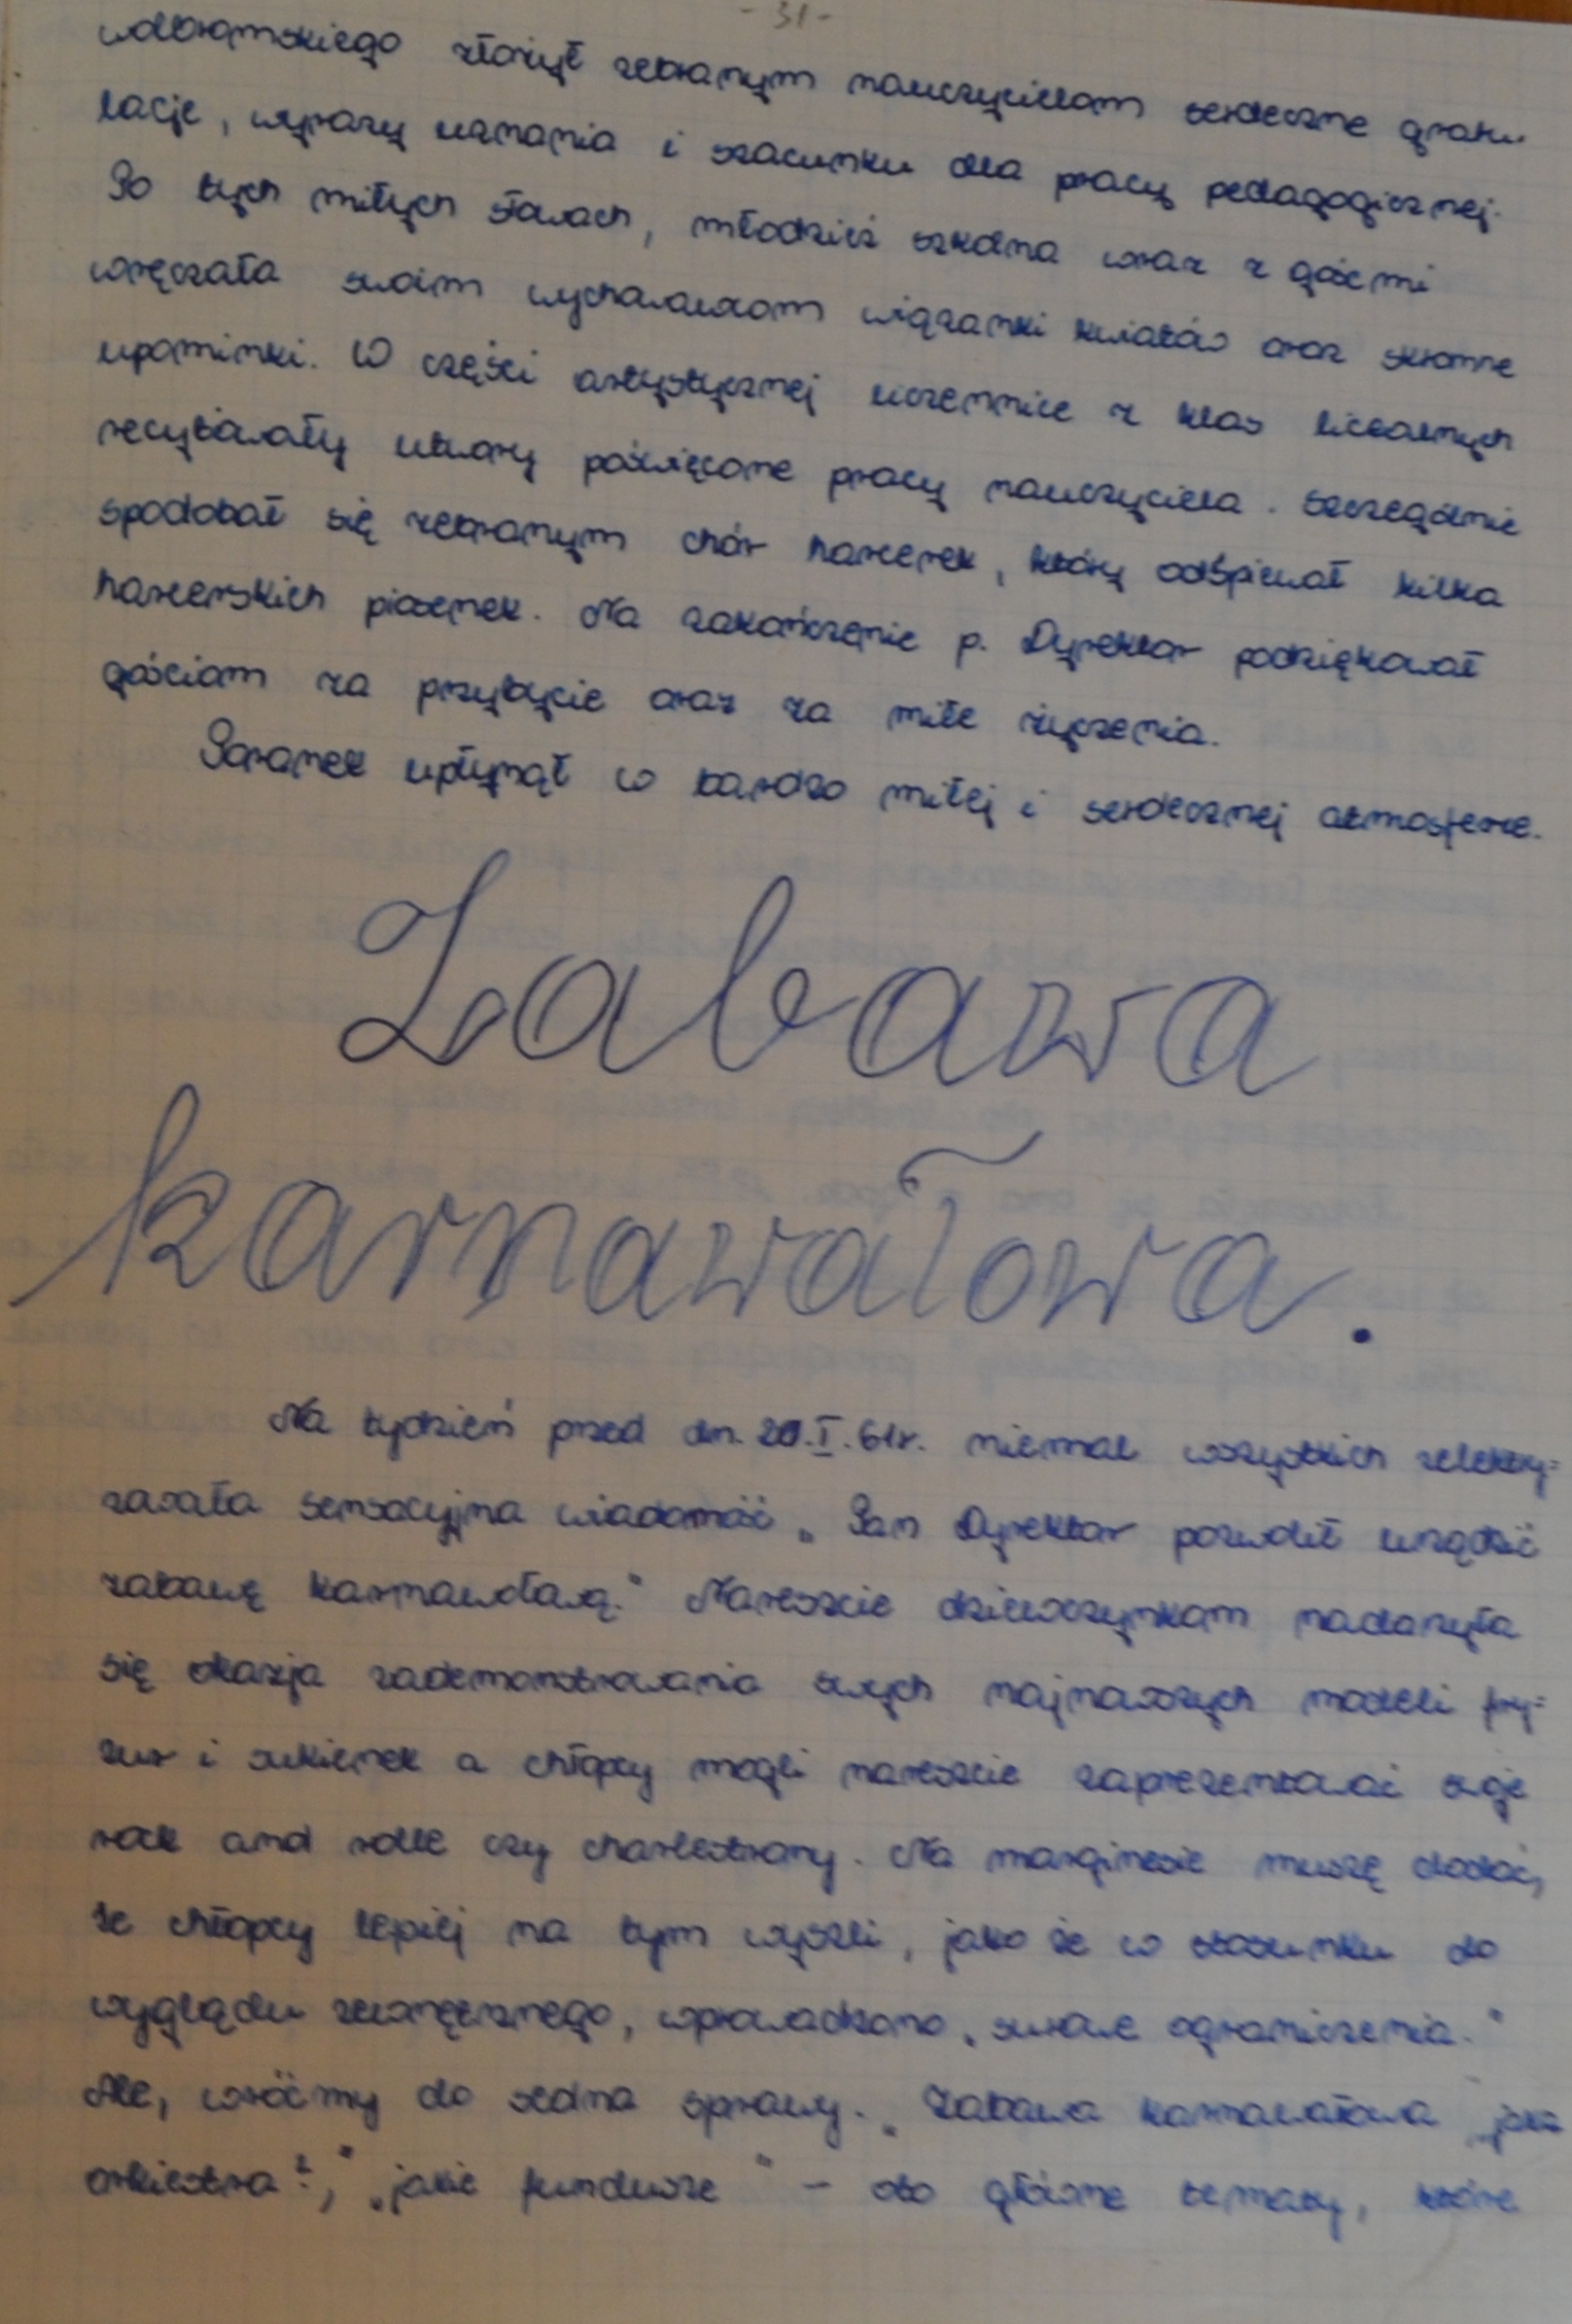 - 31 -
wolbromskiego złożył zebranym nauczycielom serdeczne gratu-
lacje, wyrazy uznania i szacunku dla pracy pedagogicznej.
Po tych miłych słowach, młodzież szkolna wraz z gośćmi
wręczała swoim wychowawcom wiązanki kwiatów oraz skromne
upominki. W części artystycznej uczennice z klas licealnych
recytowały utwory poświęcone pracy nauczyciela. Szczególnie
spodobał się zebranym chór harcerek, który odśpiewał kilka
harcerskich piosenek. Na zakończenie p. Dyrektor podziękował
gościom za przybycie oraz za miłe życzenia.
Poranek upłynął w bardzo miłej i serdecznej atmosferze.
Zabawa
karnawałowa.
Na tydzień przed dn. 20.I.61r. niemal wszystkich zelektry=
zowała sensacyjna wiadomość „Pan Dyrektor pozwolił urządzić
zabawę karnawałową." Nareszcie dziewczynkom nadarzyła
się okazja zademonstrowania swych najnowszych modeli fry=
zur i sukienek a chłopcy mogli nareszcie zaprezentować swoje
rock and rolle czy charlestony. Na marginesie muszę dodać,
że chłopcy lepiej na tym wyszli, jako że w stosunku do
wyglądu zewnętrznego, wprowadzono „surowe ograniczenia."
Ale, wróćmy do sedna sprawy. „Zabawa karnawałowa „jaka
orkiestra?," „jakie fundusze" – oto główne tematy, które